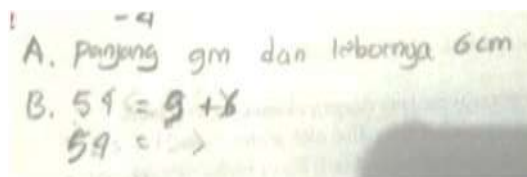 -4
A. panjang 9m dan lebarnya 6cm
B. 54 = 9 + 6
54 =